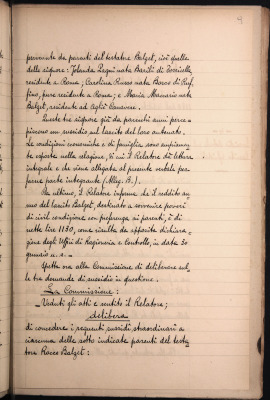 4
provenienti da parenti del testatore Balzet, cioè quelle
delle signore: Jolanda Pasqui nata Barili di Torricella,
residente a Roma; Carolina Russo nata Bosco di Ruf-
fino, pure residente a Roma; e Maria Mamario nata
Balzet, residente ad Agliè Canavese.
Queste tre signore già da parecchi anni perce-
piscono un sussidio sul lascito del loro antenato.
Le condizioni economiche e di famiglia sono ampiamen-
te esposte nella relazione, di cui il Relatore dà lettura
integrale e che viene allegata al presente verbale per
farne parte integrante (Alleg. B.).
Da ultimo, il Relatore informa che il reddito an-
nuo del lascito Balzet, destinato a sovvenire poveri
di civil condizione con preferenza ai parenti, è di
nette lire 1130, come risulta da apposita dichiara-
zione degli Uffici di Ragioneria e Controllo, in data 30
gennaio u. s. -
Spetta ora alla Commissione di deliberare sul-
le tre domande di sussidio in questione.
La Commissione:
Veduti gli atti e sentito il Relatore;
delibera
di concedere i seguenti sussidi straordinari a
ciascuna delle sotto indicate parenti del testa-
tore Rocco Balzet: